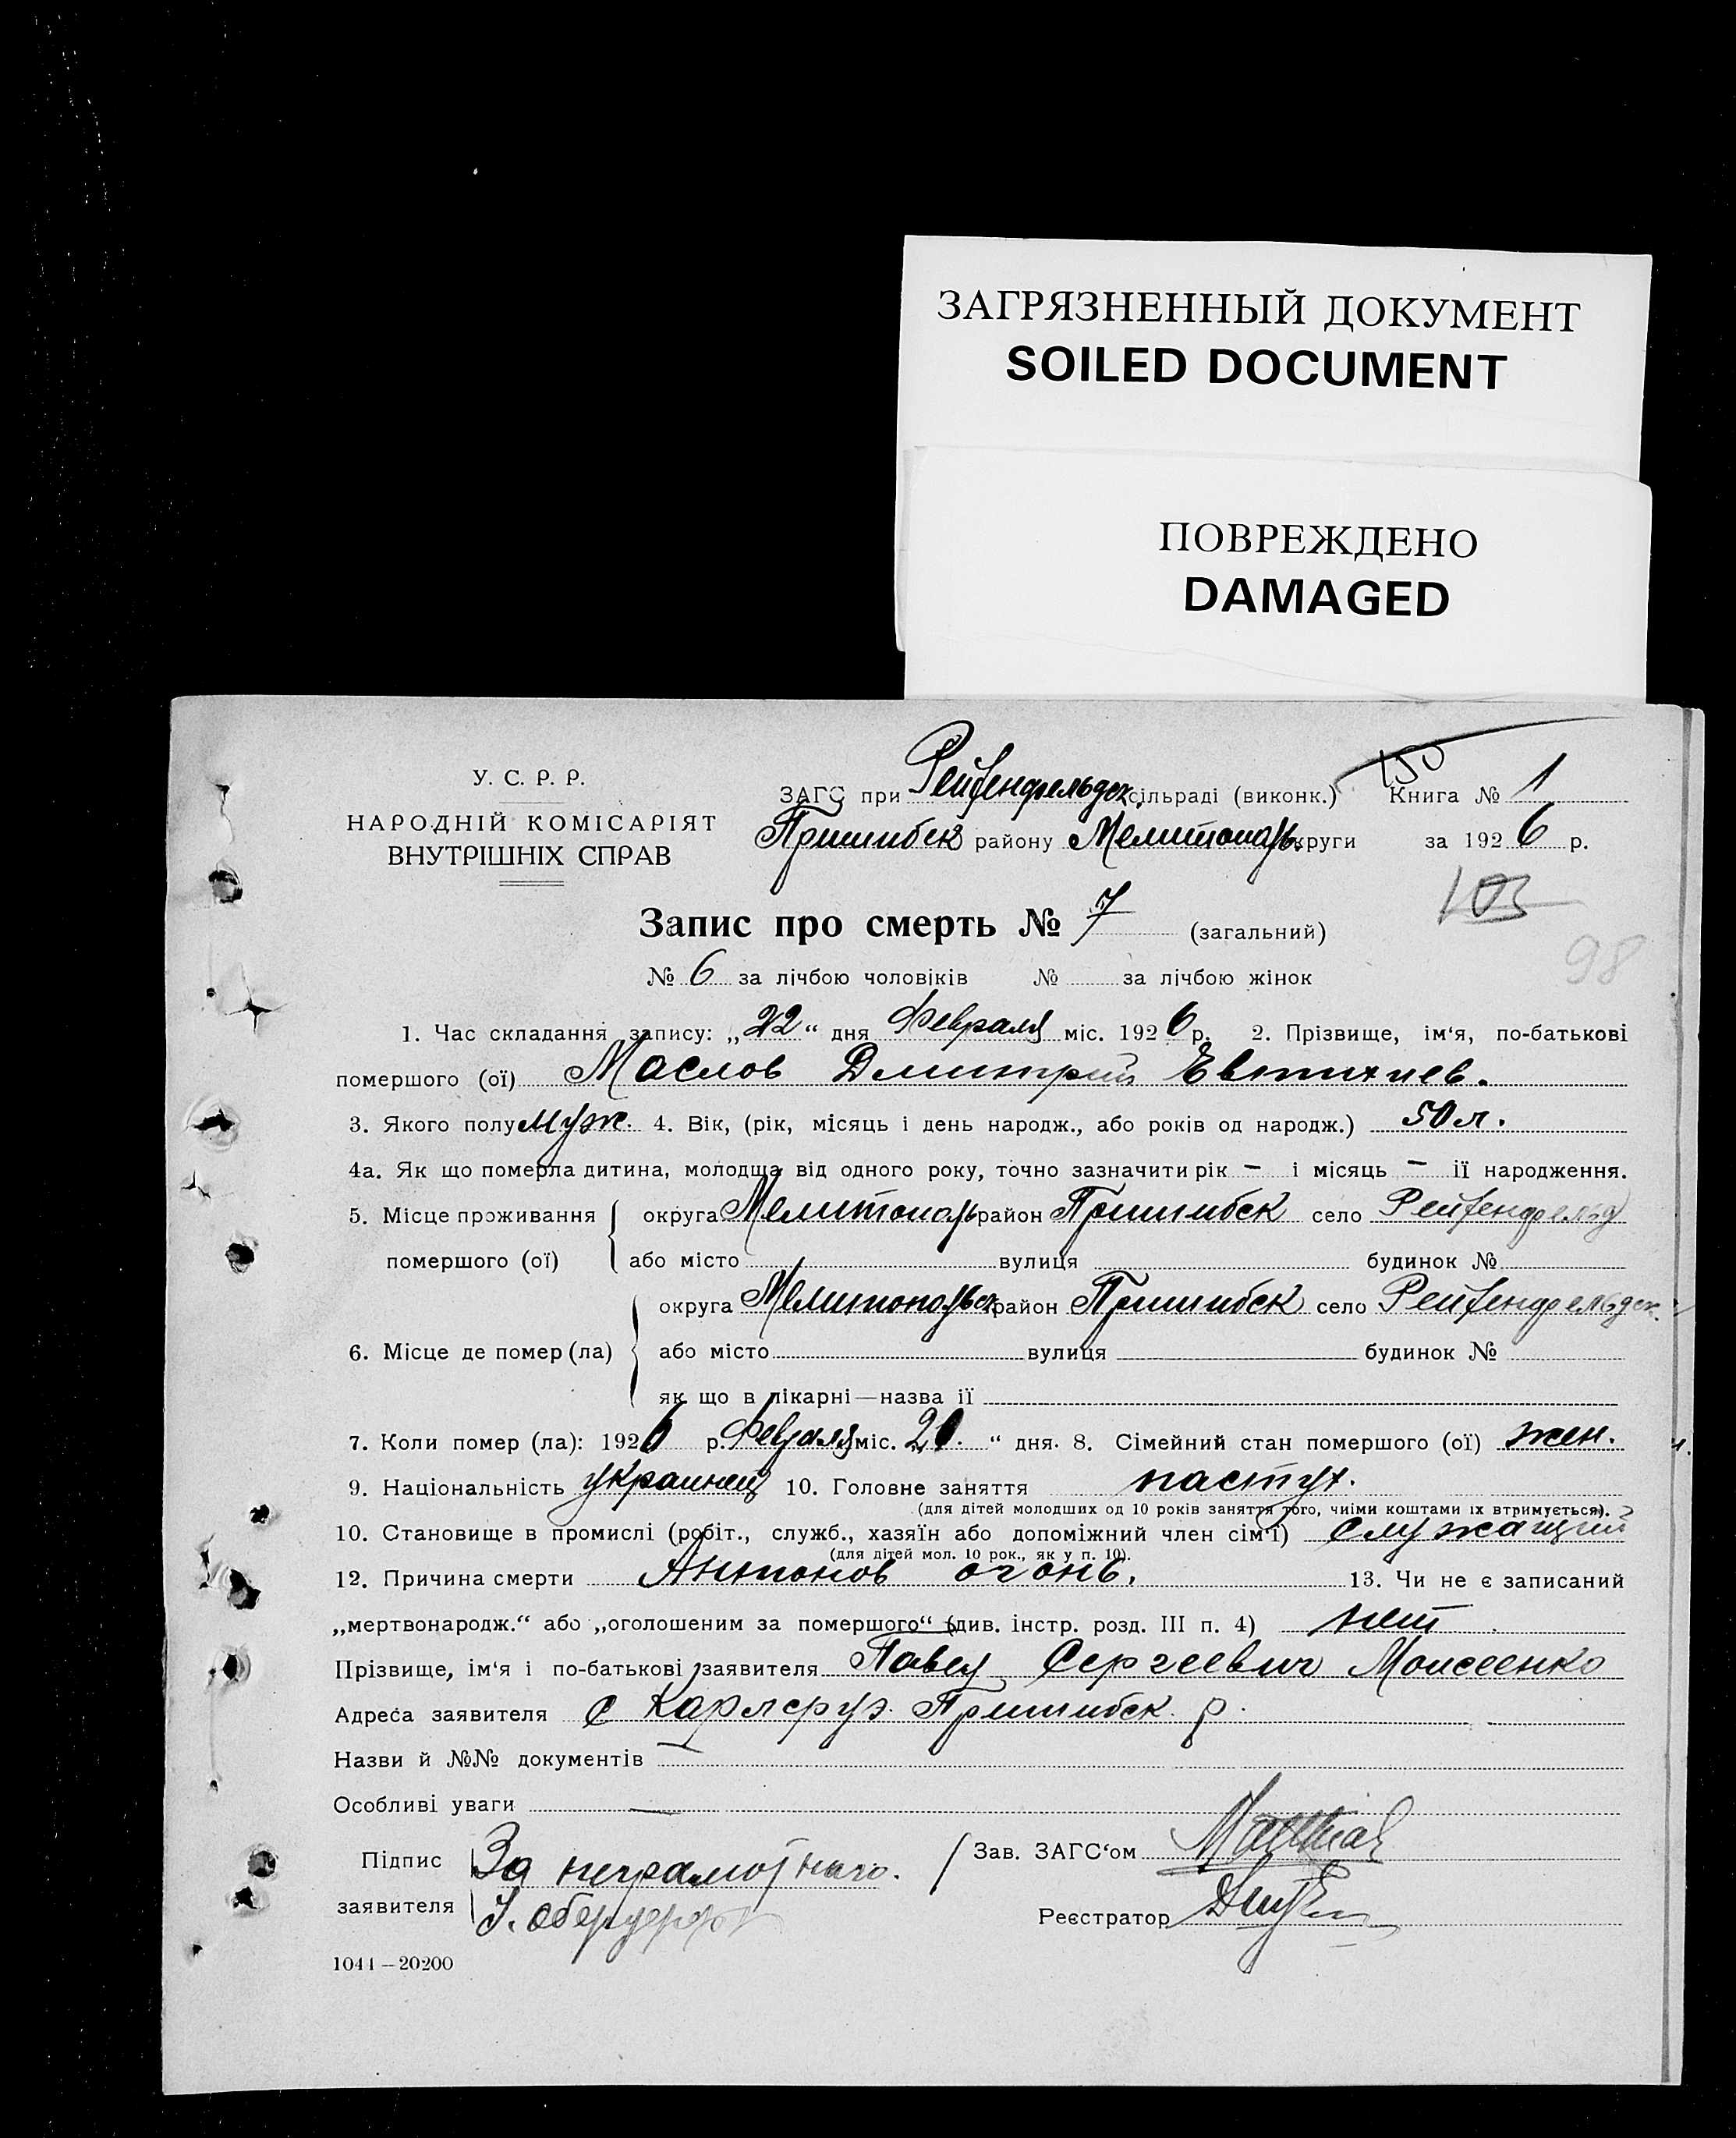 ЗАГРЯЗНЕННЫЙ ДОКУМЕНТ
SOILED DOCUMENT
ПОВРЕЖДЕНО
DAMAGED
У. С. Р. Р.
НАРОДНІЙ КОМІСАРІЯТ
ВНУТРІШНІХ СПРАВ
150
ЗАГС при Рейфенфельдск. сільраді (виконк.) Книга № 1
Пришибск району Мелитополь. округи за 1926 р.
103
Запис про смерть № 7 (загальний)
98
№ 6 за лічбою чоловіків № за лічбою жінок
1. Час складання запису: „22“ дня Февраля міс. 1926 р. 2. Прізвище, ім‘я, по-батькові
помершого (ої) Маслов Дмитрий Евтихиев.
3. Якого полу муж. 4. Вік, (рік, місяць і день народж., або років од народж.) 50 л.
4а. Як що померла дитина, молодща від одного року, точно зазначити рік — і місяць — ії народження.
5. Місце проживання округа Мелитополь район Пришибск село Рейфенфельд
помершого (ої) або місто вулиця будинок №
округа Мелитопольск район Пришибск село Рейфенфельдск.
6. Місце де помер (ла) або місто вулиця будинок №
як що в лікарні—назва ії
7. Коли помер (ла): 1926 р. Февраля міс. 20. “ дня. 8. Сімейний стан помершого (ої) жен.
9. Національність украинец 10. Головне заняття пастух.
(для дітей молодших од 10 років заняття того, чиїми коштами їх втримується).
10. Становище в промислі (робіт., служб., хазяїн або допоміжний член сім‘ї) служащий
(для дітей мол. 10 рок., як у п. 10).
12. Причина смерти Антонов огонь. 13. Чи не є записаний
„мертвонародж.“ або „оголошеним за помершого“ (див. інстр. розд. III п. 4) нет
Прізвище, ім‘я і по-батькові заявителя Павел Сергеевич Моисеенко
Адреса заявителя с Карлсруэ. Пришибск. р.
Назви й №№ документів —
Особливі уваги —
Підпис За неграмотнаго. Зав. ЗАГС‘ом
заявителя Реєстратор
1044—20200